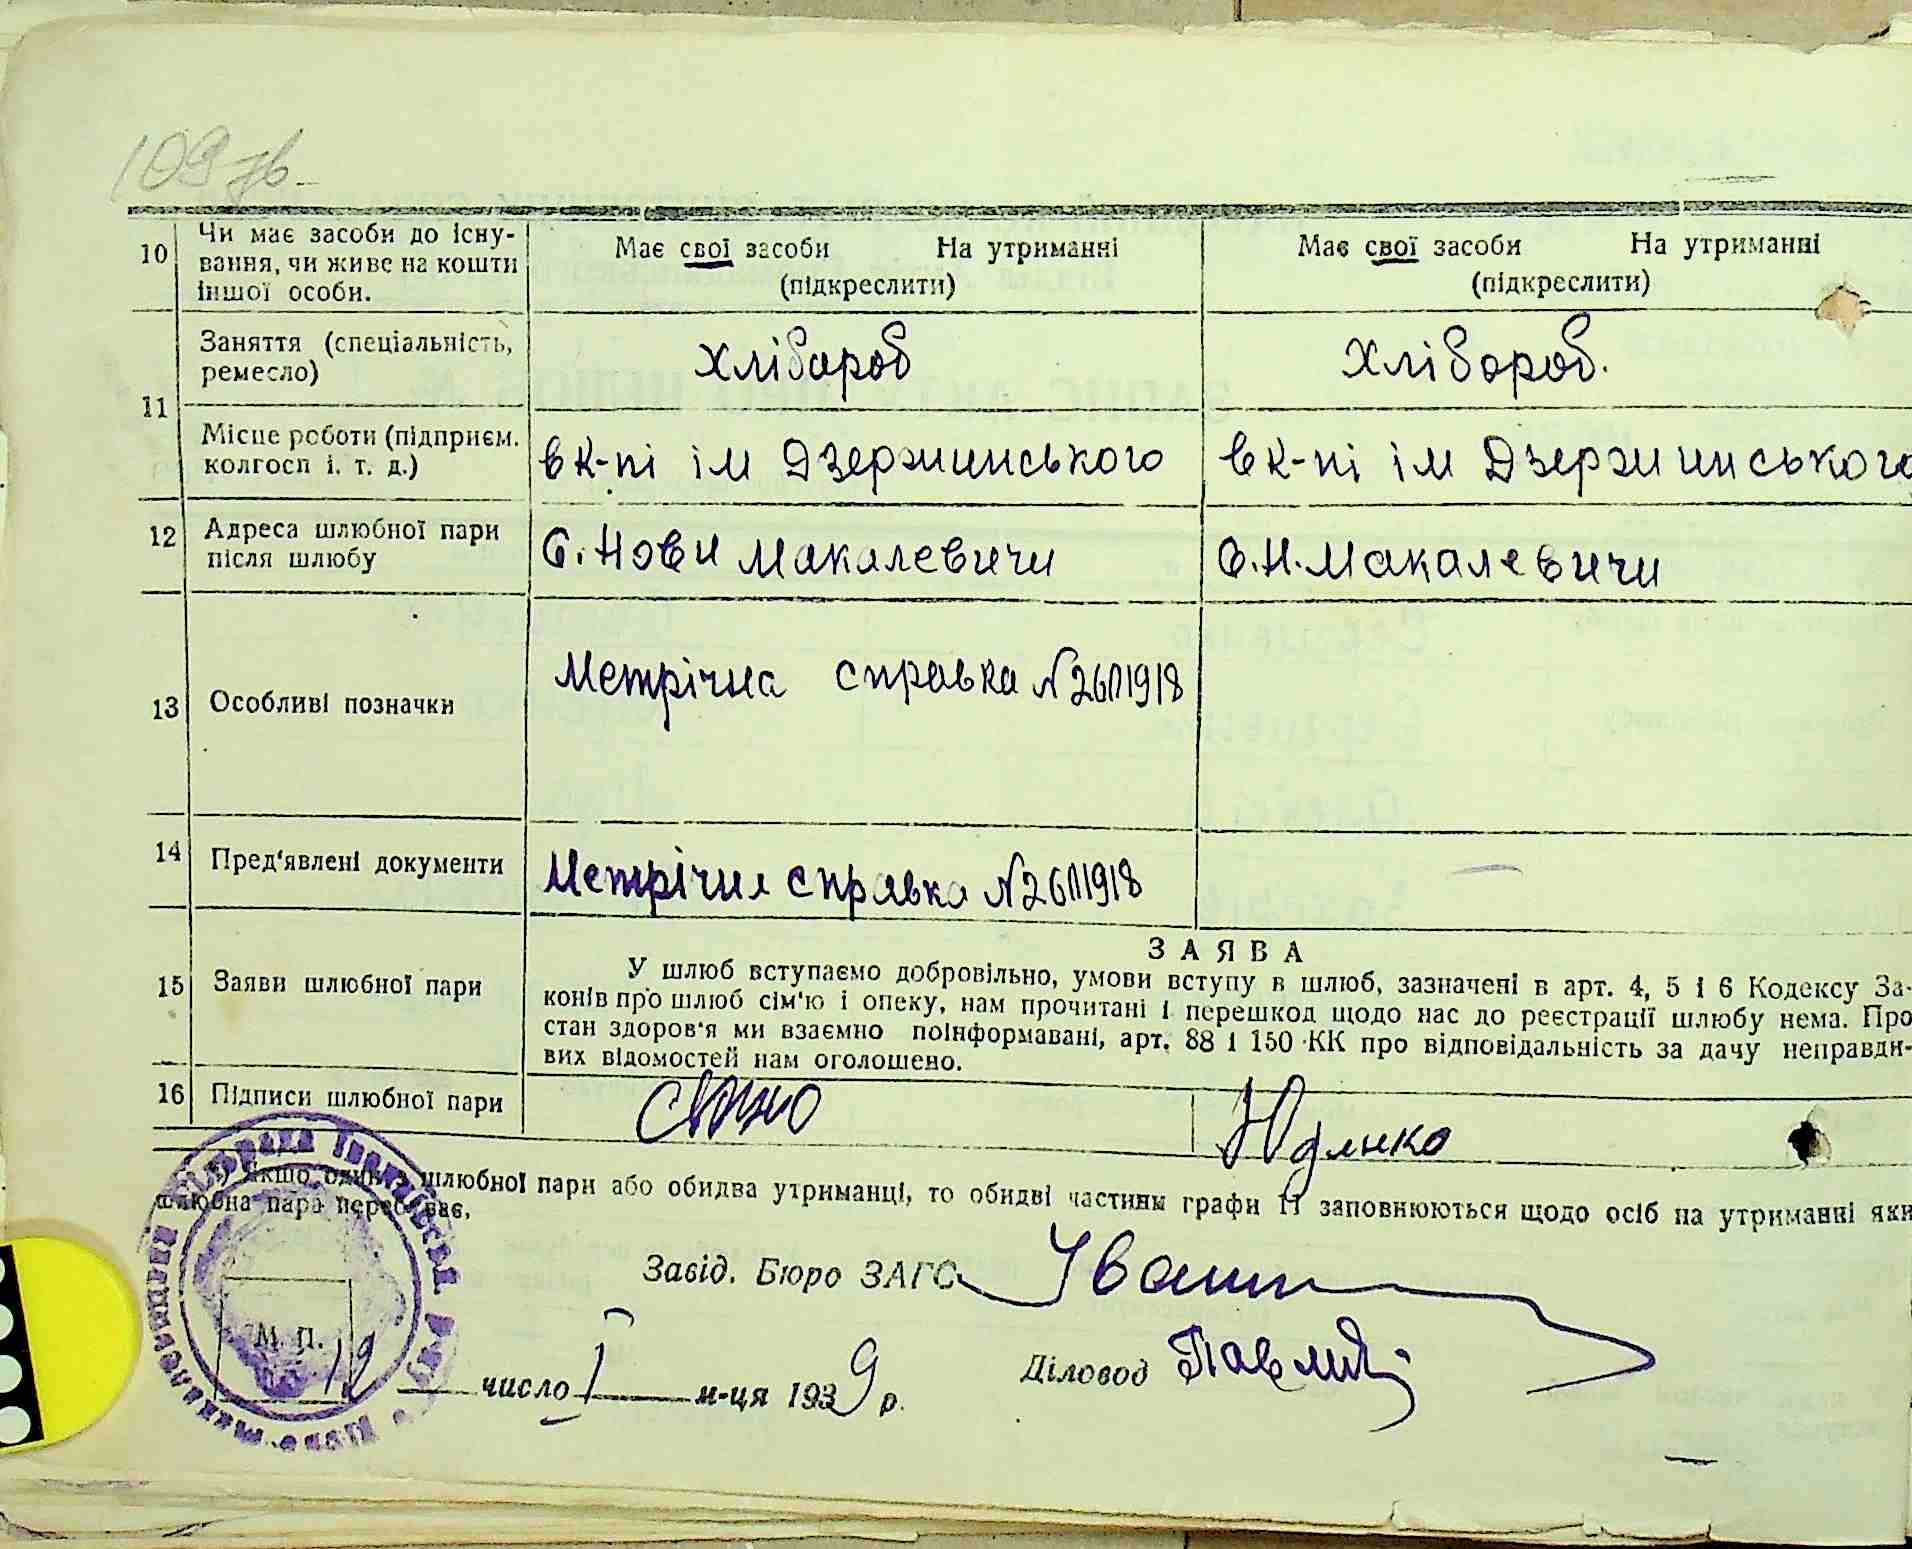 109 зв.
10 Чи має засоби до існу-
вання, чи живе на кошти
іншої особи.
Має свої засоби На утриманні
(підкреслити)
Має свої засоби На утриманні
(підкреслити)
11
Заняття (спеціальність,
ремесло)
хлібароб
хлібороб.
Місце роботи (підприєм.
колгосп і. т. д.)
в к-пі ім Дзержинського
в к-пі ім Дзержинського
12 Адреса шлюбної пари
після шлюбу
с. Нови Макалевичи
с. Н. Макалевичи
13 Особливі позначки
Метрічна справка №
14 Пред'явлені документи
Метрічна справка №
15 Заяви шлюбної пари
ЗАЯВА
У шлюб вступаємо добровільно, умови вступу в шлюб, зазначені в арт. 4, 5 і 6 Кодексу За-
конів про шлюб сім'ю і опеку, нам прочитані і перешкод щодо нас до реєстрації шлюбу нема. Про
стан здоров'я ми взаємно поінформавані, арт. 88 і 150 КК про відповідальність за дачу неправди-
вих відомостей нам оголошено.
16 Підписи шлюбної пари
Юденко
Якщо один з шлюбної пари або обидва утриманці, то обидві частини графи 11 заповнюються щодо осіб на утриманні яки
шлюбна пара перебуває,
Завід. Бюро ЗАГС
М. П.
19 число I м-ця 1939 р.
Діловод